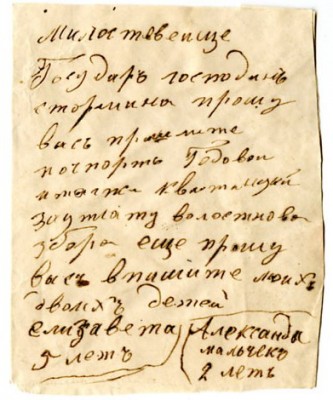 Милоствеище
Государъ господанъ
стормина прошу
васъ пришлите
почпортъ Годовои
и также квитанций
за уплату волостнова
збора еще прошу
васъ впишите моихъ
двоихъ детей
елизавета
5 летъ
Александа
мальчекъ
2 летъ